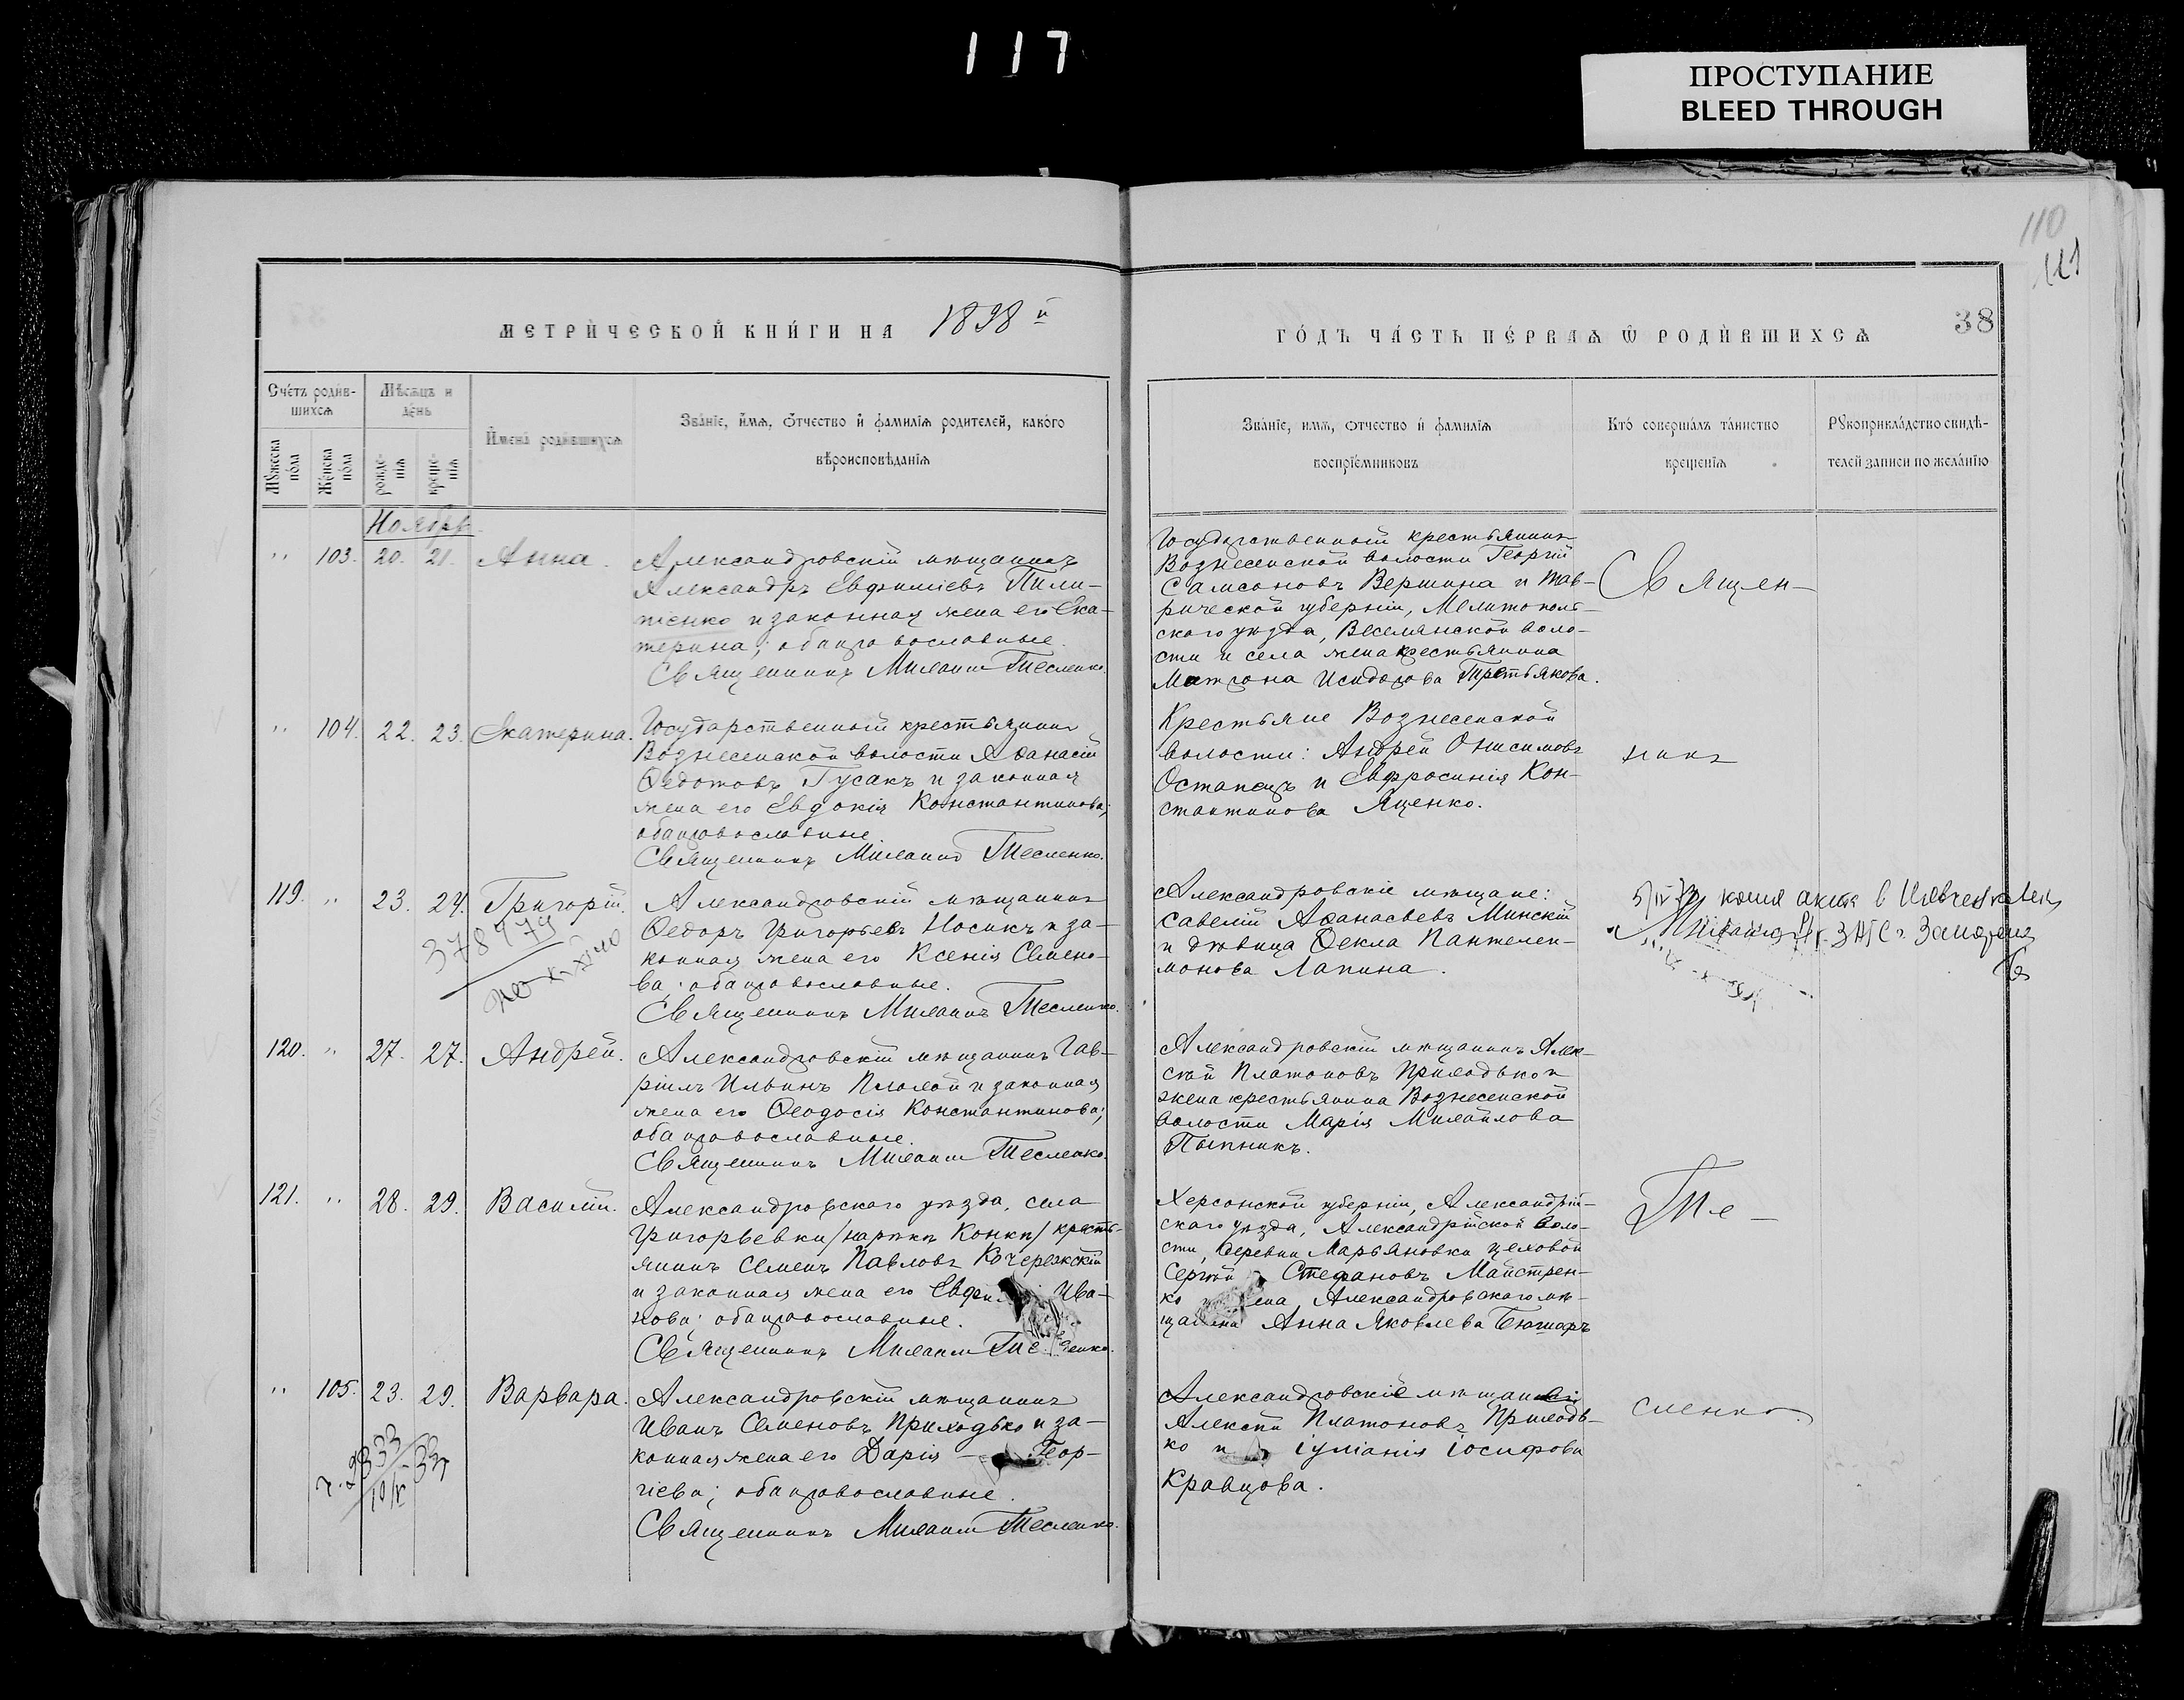 117
ПРОСТУПАНИЕ
BLEED THROUGH
110
111
38
МЕТРИ́ЧЕСКОЙ КНИ́ГИ НА 1898 й
ГО́ДЪ ЧА́СТЬ ПЕ́РВАѦ Ѡ РОДИ́ВШИХСѦ
Сче́тъ роди́в-
шихсѧ
Мꙋ́жеска по́ла
Же́нска по́ла
Мѣ́сѧцъ и
де́нь
рожде́-
нїѧ
креще́-
нїѧ
И҆мена̀ роди́вшихсѧ
Зва́нїе, и҆́мѧ, ѻ҆́тчество и҆ фами́лїѧ роди́телей, како́гѡ
вѣроисповѣ́данїѧ
Зва́нїе, и҆́мѧ, ѻ҆́тчество и҆ фами́лїѧ
воспрїе́мниковъ
Кто̀ соверша́лъ та́инство
креще́нїѧ
Рꙋкоприкла́дство свидѣ́-
телей записи по жела́нїю
Ноябрь
" 103. 20. 21. Анна.
Александровскій мѣщанинъ
Александръ Евфиміевъ Пили-
пенко и законная жена его Ека-
терина; оба православные.
Священникъ Михаилъ Тесленко.
Государственный крестьянинъ
Вознесенской волости Георгій
Самсоновъ Вершина и Тав-
рической губерніи, Мелитополь-
скаго уѣзда, Веселянской воло-
сти и села жена крестьянина
Матрона Исидорова Третьякова.
Священ-
" 104. 22. 23. Екатерина.
Государственный крестьянинъ
Вознесенской волости Аѳанасій
Ѳедотовъ Гусакъ и законная
жена его Евдокія Константинова;
оба православные.
Священникъ Михаилъ Тесленко.
Крестьяне Вознесенской
волости: Андрей Онисимовъ
Остапецъ и Евфросинія Кон-
стантинова Яценко.
никъ
119. " 23. 24. Григорій.
Александровскій мѣщанинъ
Ѳедоръ Григорьевъ Носикъ и за-
конная жена его Ксенія Семено-
ва; оба православные.
Священникъ Михаилъ Тесленко.
Александровскіе мѣщане:
Савелій Аѳанасьевъ Минскій
и дѣвица Ѳекла Пантелеи-
монова Лапина.
копия акта в
Михаилъ
ЗАГС
120. " 27. 27. Андрей.
Александровскій мѣщанинъ Гав-
ріилъ Ильинъ Плохой и законная
жена его Ѳеодосія Константинова;
оба православные.
Священникъ Михаилъ Тесленко.
Александровскій мѣщанинъ Алек-
сѣй Платоновъ Приходько и
жена крестьянина Вознесенской
волости Марія Михайлова
Пыпникъ.
121. " 28. 29. Василій.
Александровскаго уѣзда, села
Григорьевки /нарѣки Конки/ кресть-
янинъ Семенъ Павловъ Кочережскій
и законная жена его Ива-
нова; оба православные.
Священникъ Михаилъ Тесленко.
Херсонской губерніи, Александрій-
скаго уѣзда, Александрійской воло-
сти, деревни Марьяновки цеховой
Сергѣй Стефановъ Майстрен-
ко и жена Александровскаго мѣ-
щанина Анна Яковлева Бюшаръ
Те-
" 105. 23. 29. Варвара.
Александровскій мѣщанинъ
Иванъ Семеновъ Приходько и за-
конная жена его Дарія — Геор-
гіева; оба православные.
Священникъ Михаилъ Тесленко.
Александровскіе мѣщане
Алексѣй Платоновъ Приходь-
ко и Іуліанія Іосифова
Кравцова.
сленко.